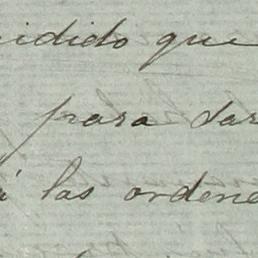 idido que
para dar
á las ordene